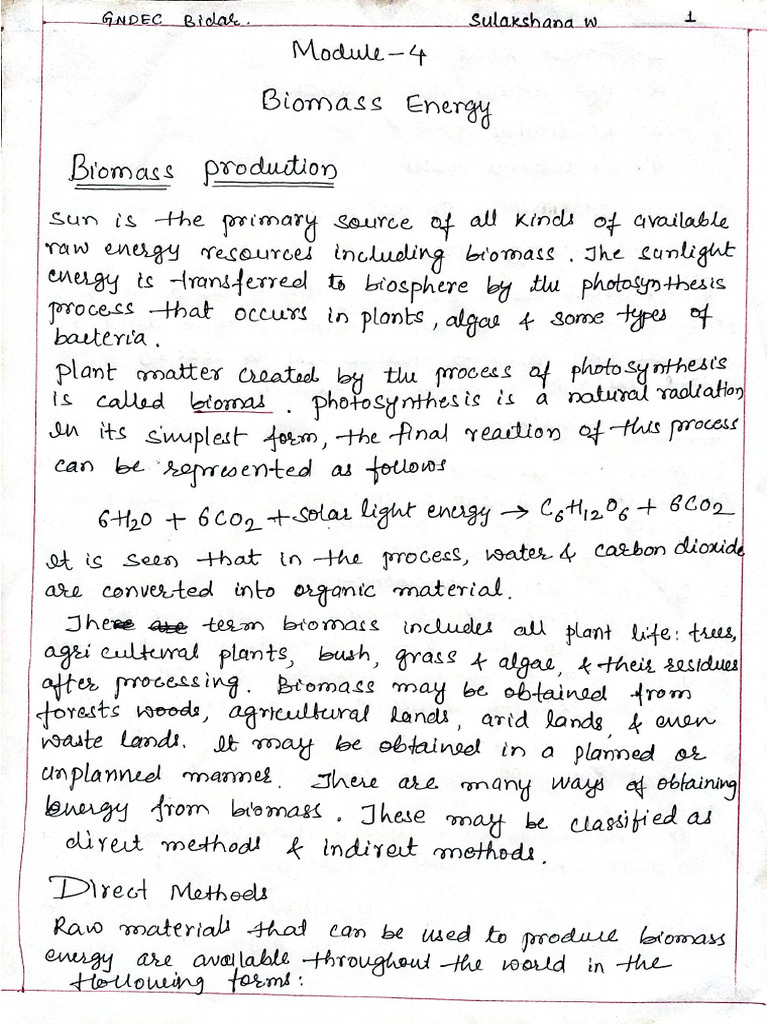 GNDEC Bidar. Sulakshana W 1
Module-4
Biomass Energy
Biomass production
Sun is the primary source of all kinds of available
raw energy resources including biomass. The sunlight
energy is transferred to biosphere by the photosynthesis
process that occurs in plants, algae & some types of
bacteria.
plant matter created by the process of photosynthesis
is called biomas. photosynthesis is a natural radiation
In its simplest form, the final reaction of this process
can be represented as follows
6H2O + 6CO2 + solar light energy → C6H12O6 + 6CO2
It is seen that in the process, water & carbon dioxide
are converted into organic material.
The term biomass includes all plant life: trees,
agricultural plants, bush, grass & algae, & their residues
after processing. Biomass may be obtained from
forests woods, agricultural lands, arid lands, & even
waste lands. It may be obtained in a planned or
unplanned manner. There are many ways of obtaining
energy from biomass. These may be classified as
direct methods & indirect methods.
Direct Methods
Raw materials that can be used to produce biomass
energy are available throughout the world in the
following forms: